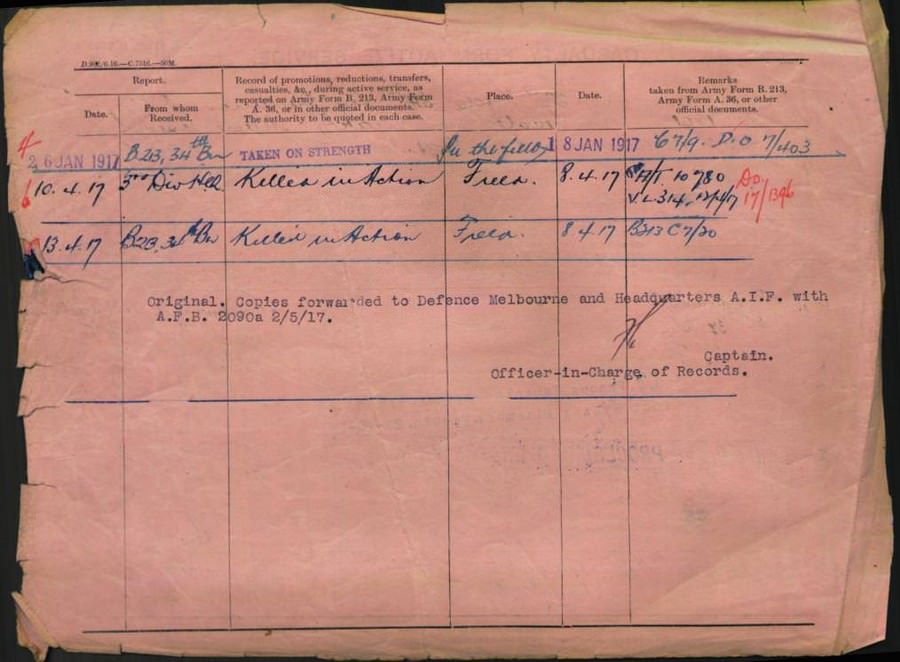 Report.
Record of promotions, reductions, transfers,
casualties, &c., during active service, as
reported on Army Form B. 213, Army Form
A. 36, or in other official documents.
The authority to be quoted in each case.
Place.
Date.
Remarks
taken from Army Form B. 213,
Army Form A. 36, or other
official documents.
Date.
From whom
Received.
26 JAN 1917 B213, 34th Bn TAKEN ON STRENGTH In the field 18 JAN 1917 C7/9. D.O 7/403
10.4.17 3rd Div Killed in Action Field. 8.4.17 10780
17/1396
13.4.17 B213, 34th Bn Killed in Action Field. 8.4.17 B213 C7/20
Original. Copies forwarded to Defence Melbourne and Headquarters A.I.F. with
A.F.B. 2090a 2/5/17.
Captain.
Officer-in-Charge of Records.